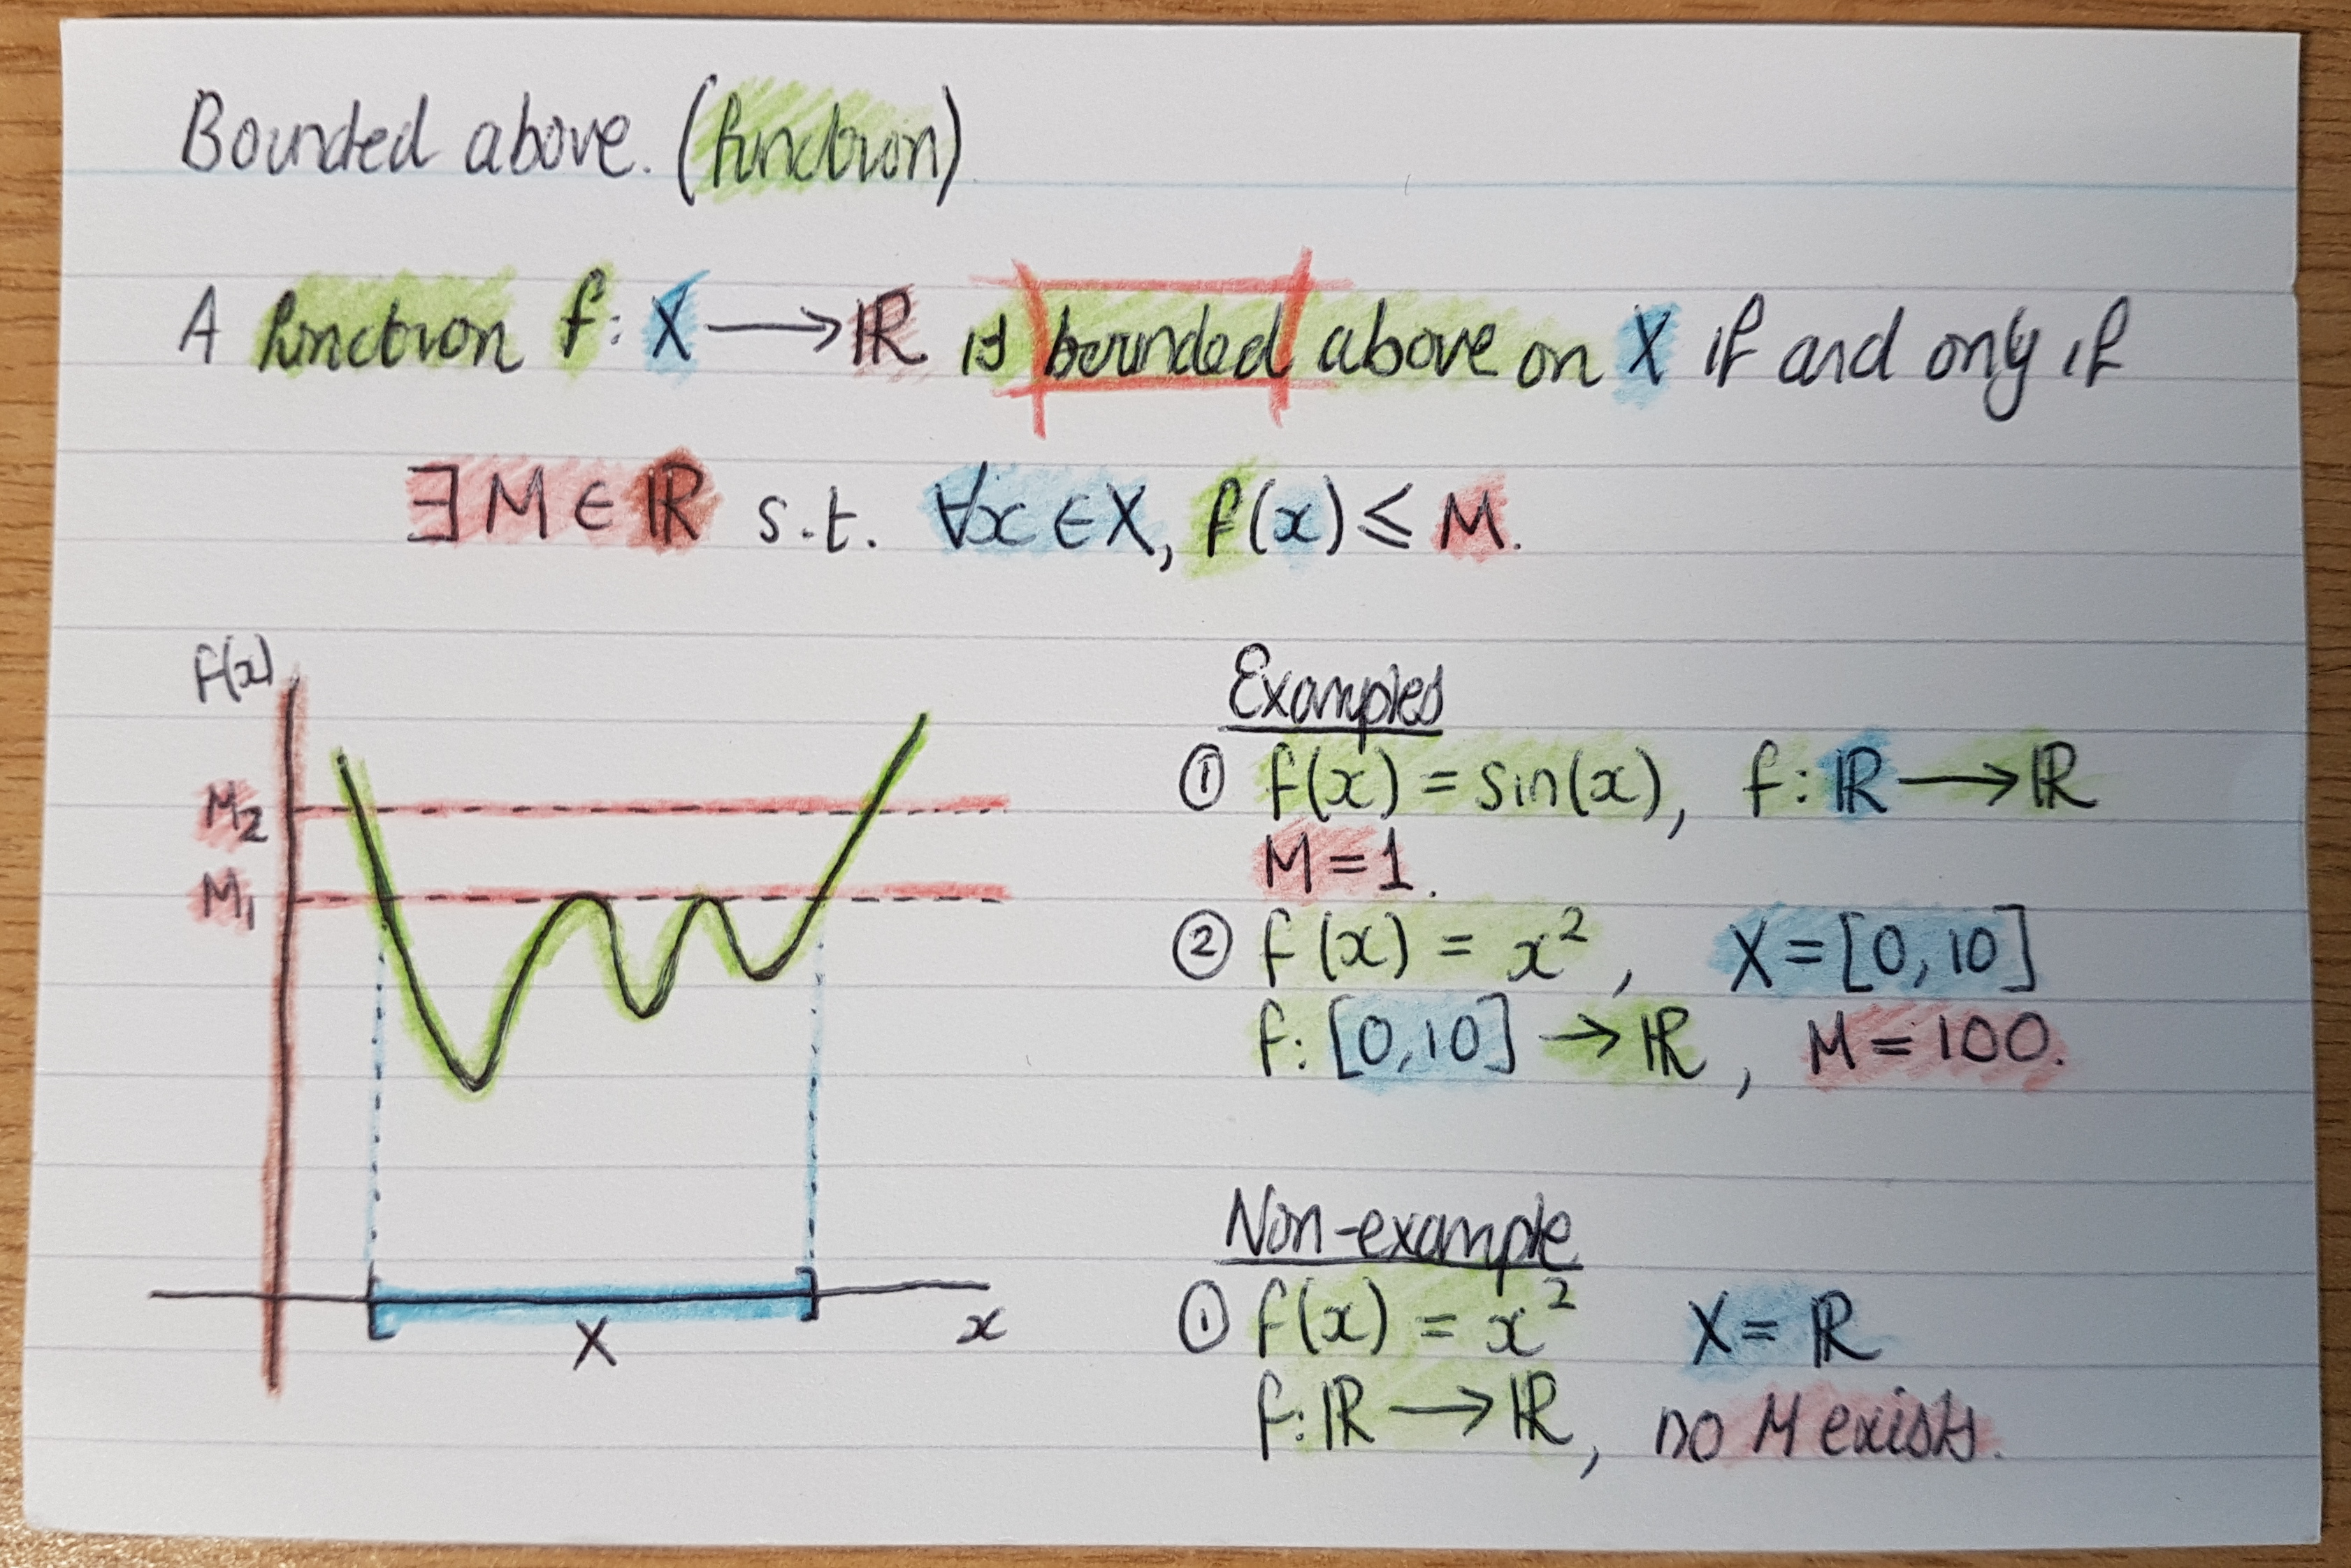 Bounded above. (function)
A function f: X ⟶ ℝ is bounded above on X if and only if
∃ M ∈ ℝ s.t. ∀x ∈ X, f(x) ≤ M.
f(x)
M₂
M₁
X
x
Examples
① f(x) = sin(x), f: ℝ ⟶ ℝ
M = 1.
② f(x) = x², X = [0, 10]
f: [0, 10] → ℝ, M = 100.
Non-example
① f(x) = x² X = ℝ
f: ℝ ⟶ ℝ, no M exists.